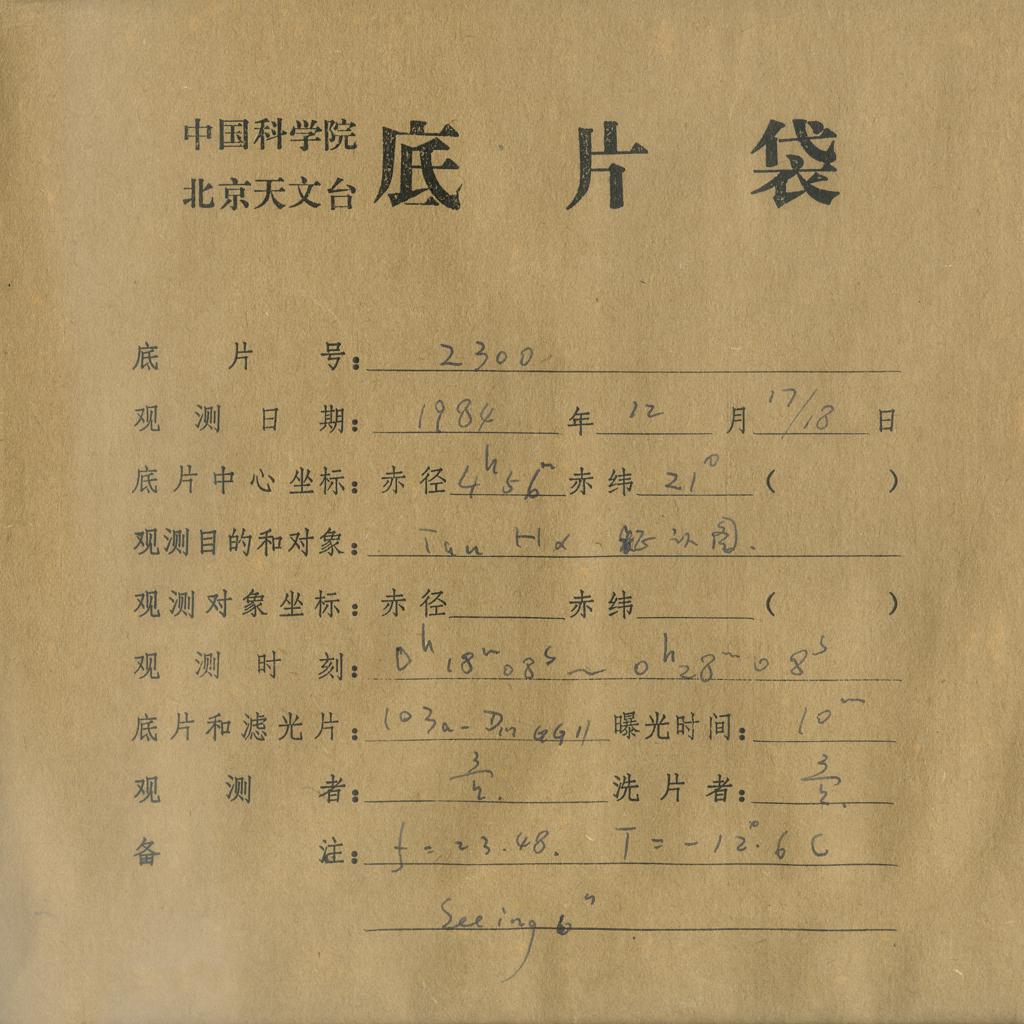 中国科学院
北京天文台
底片袋
底片号: 2300
观测日期: 1984 年 12 月 17/18 日
底片中心坐标: 赤径 4h 56m 赤纬 21° ( )
观测目的和对象: Tau Hα 证认图.
观测对象坐标: 赤径 赤纬 ( )
观测时刻: 0h 18m 08s ~ 0h 28m 08s
底片和滤光片: 103a-D GG11 曝光时间: 10m
观测者: 洗片者:
备注: f = 23.48. T = -12°.6 C
Seeing 6"